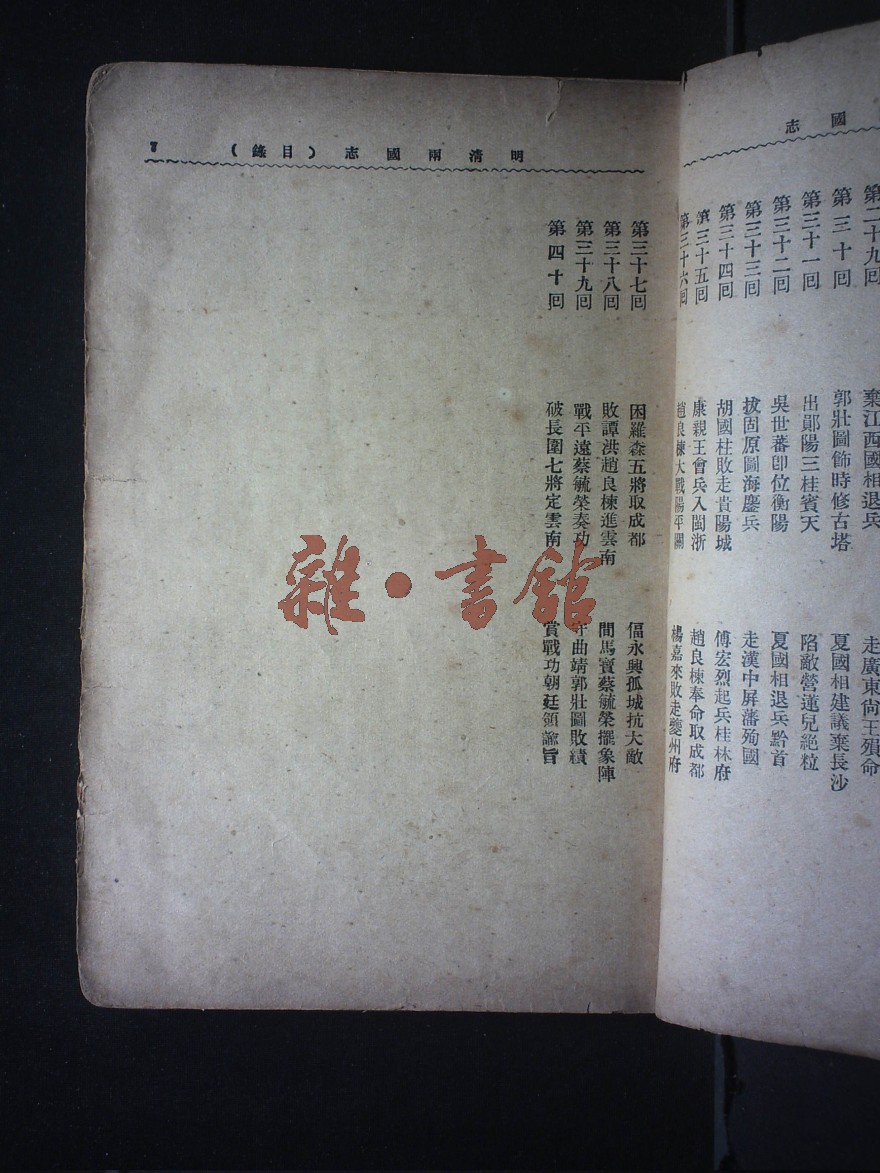 志國
第二十九回 棄江西國相退兵 走廣東尙王殞命
第三十回 郭壯圖飾時修古塔 夏國相建議棄長沙
第三十一回 出鄖陽三桂賓天 陷敵營蓮兒絶粒
第三十二回 吳世蕃卽位衡陽 夏國相退兵黔首
第三十三回 拔固原圖海鏖兵 走漢中屏藩殉國
第三十四回 胡國柱敗走貴陽城 傅宏烈起兵桂林府
第三十五回 康親王會兵入閩浙 趙良棟奉命取成都
第三十六回 趙良棟大戰陽平關 楊嘉來敗走夔州府
明淸兩國志(目錄) 7
第三十七回 困羅森五將取成都 偪永興孤城抗大敵
第三十八回 敗譚洪趙良棟進雲南 間馬寳蔡毓榮擺象陣
第三十九回 戰平遠蔡毓榮奏功 守曲靖郭壯圖敗績
第四十回 破長圍七將定雲南 賞戰功朝廷頒諭旨
雜·書館